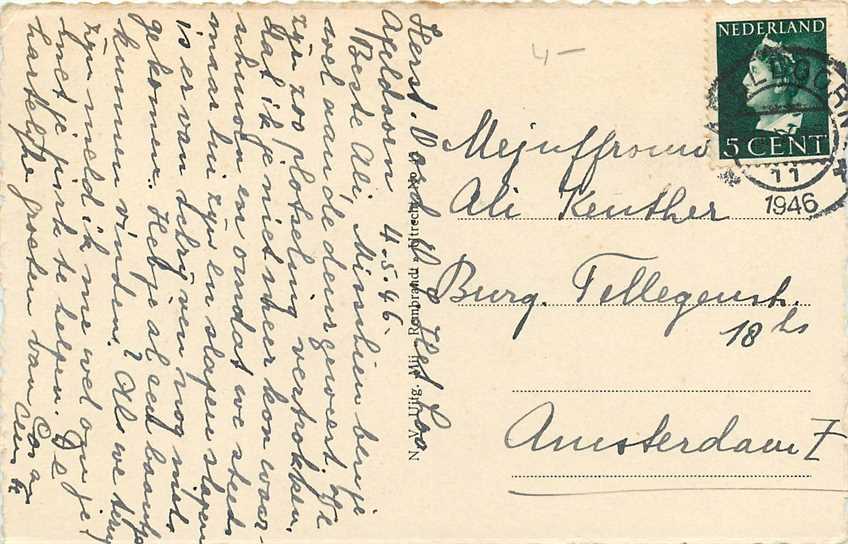 NEDERLAND
5 CENT
APELDOORN
11
1946
4-
Mejuffrouw
Ali Keuther
Burg. Tellegenst.
18 hs
Amsterdam Z
N. V. Uitg. Mij. Rembrandt Utrecht No
Herst. Oord Het Loo
Apeldoorn 4.5.46.
Beste Ali, Misschien ben je
wel aan de deur geweest. We
zijn zoo plotseling vertrokken,
dat ik je niet meer kon waar-
schuwen en omdat we steeds
maar lui zijn en slapen slapen
is er van schrijven nog niets
gekomen. Heb je al een baantje
kunnen vinden? Als we terug
zijn meld ik me wel om je
met je jurk te helpen. De
hartelijke groeten van